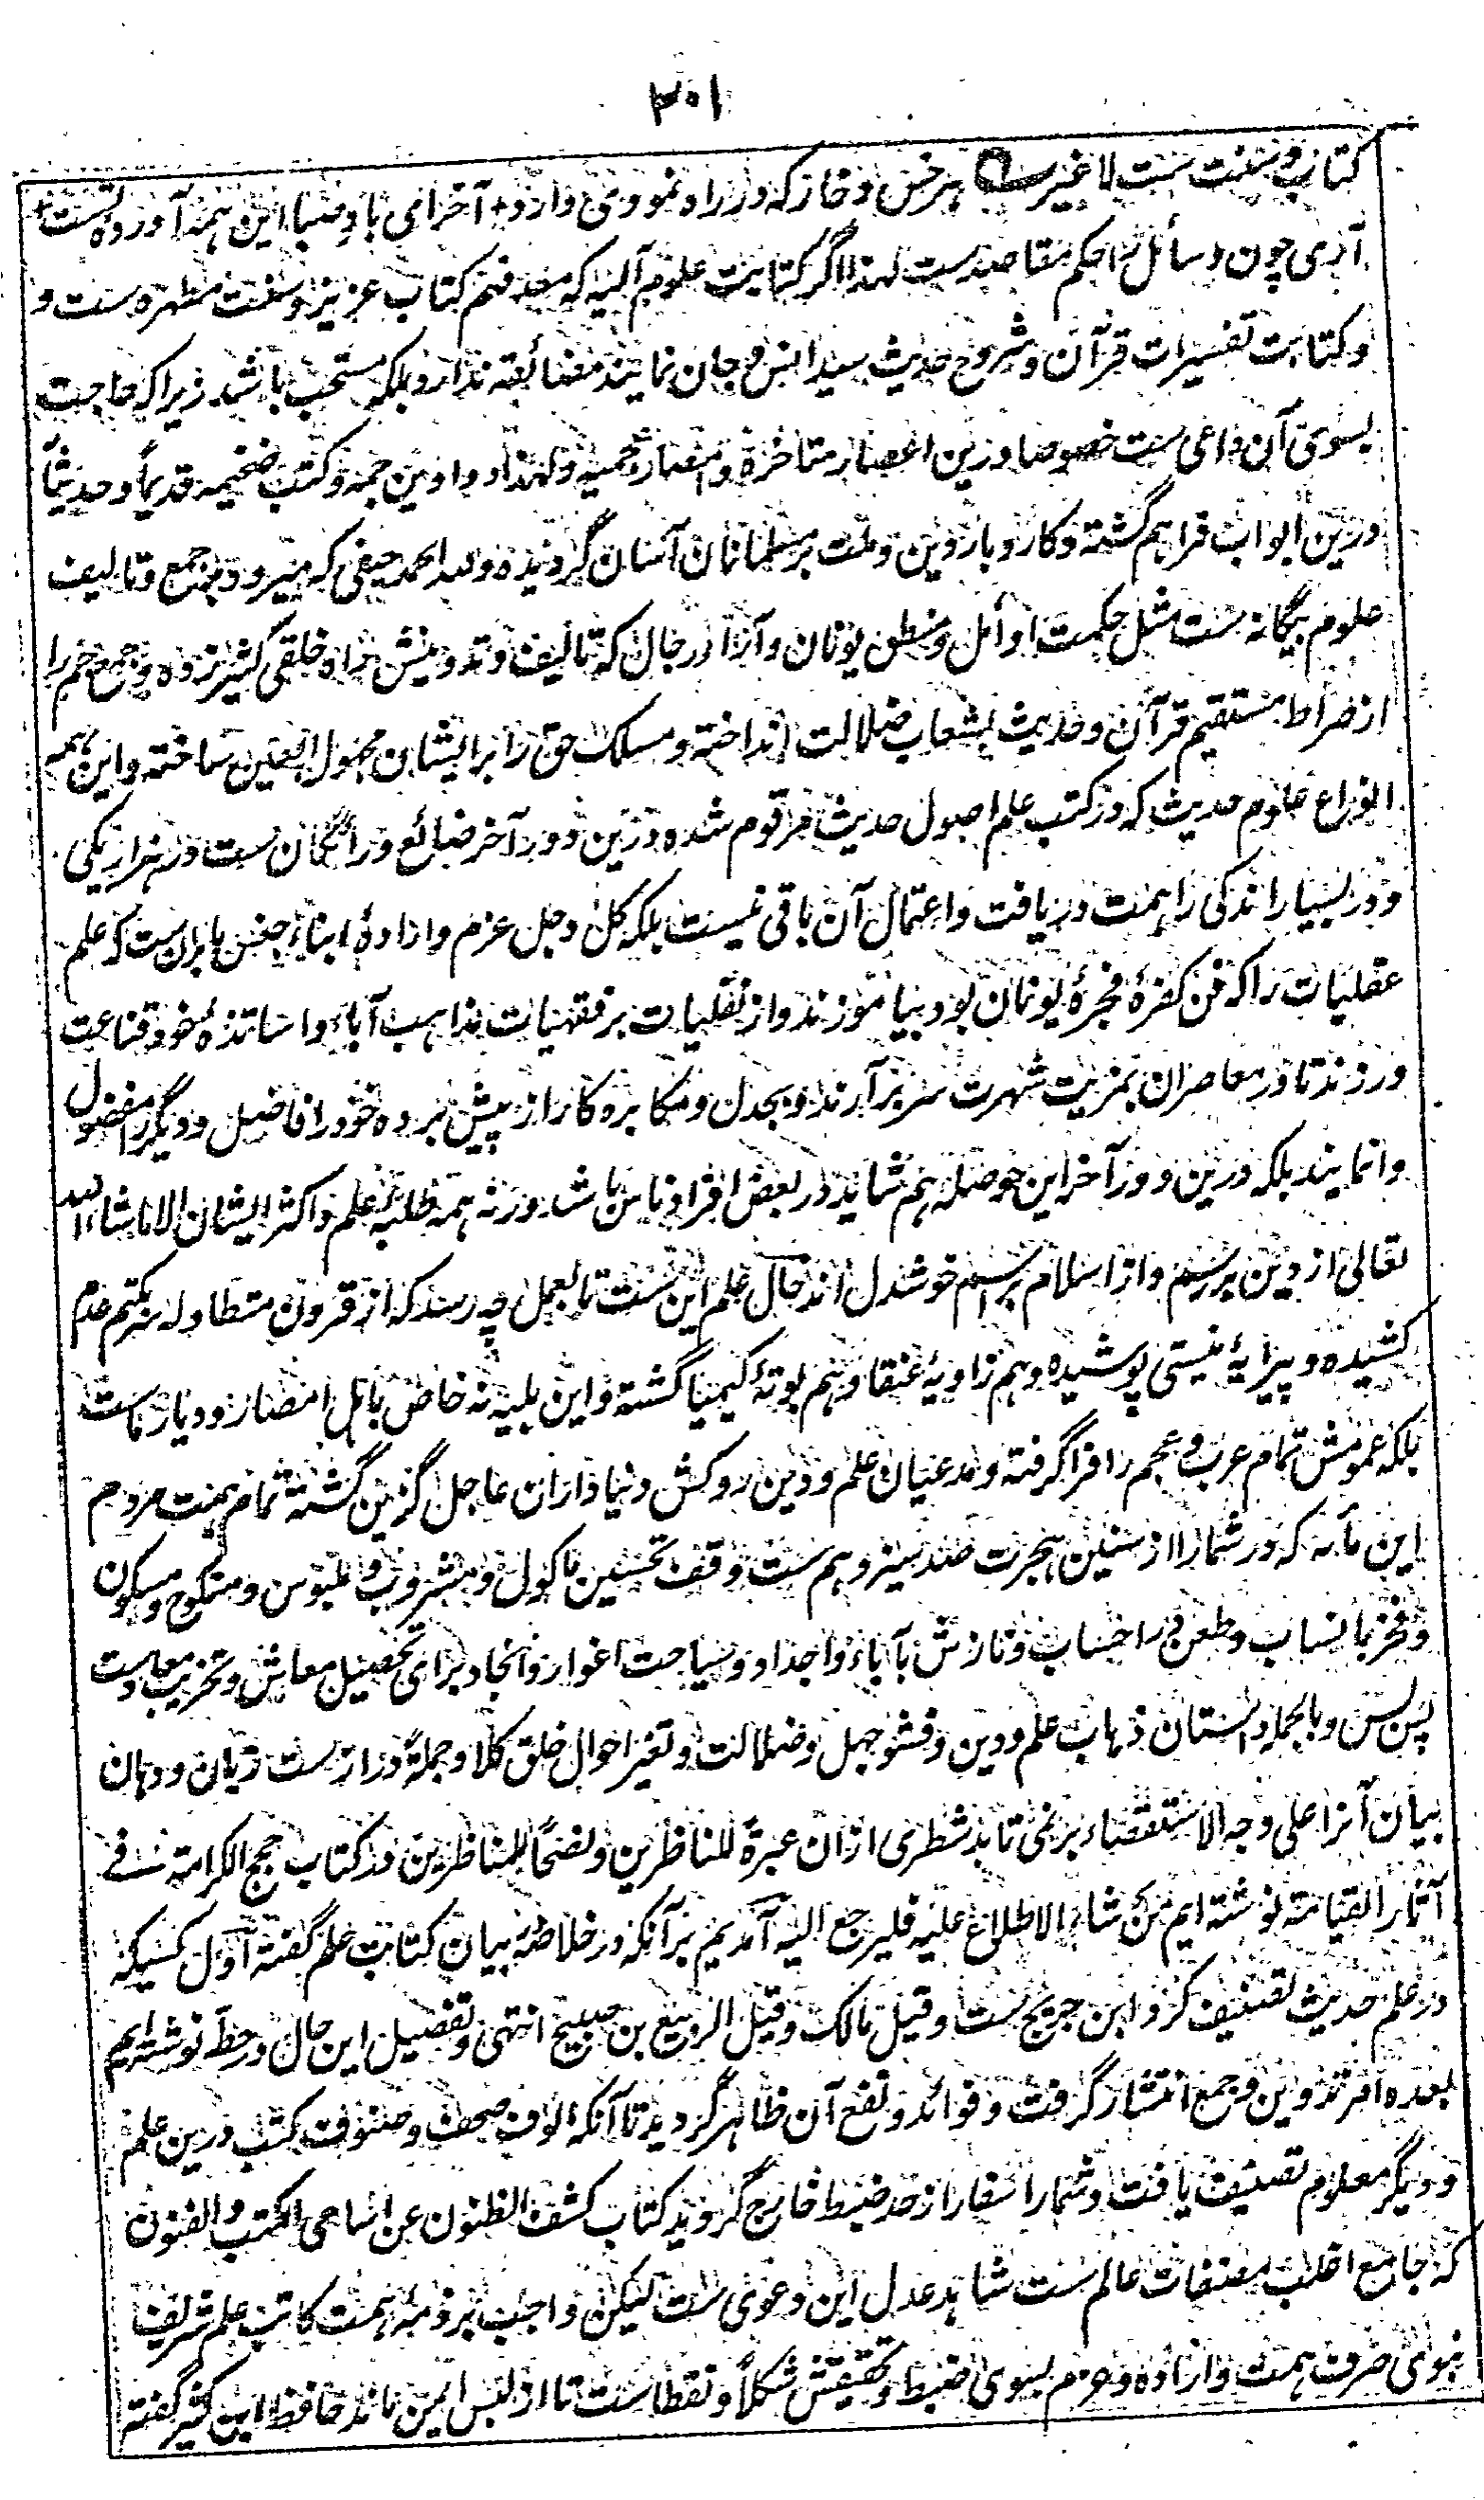 ٣٠١
کتاب و سنت ست لا غیر ہر خس و خار که در راه نمودی دارد + آخر ای باد صبا این ہمه آورده تست +
آری چون وسائل را حکم مقاصدست لهذا اگر کتابت علوم آلیه که معد فہم کتاب عزیز و سنت مطہره ست و
و کتابت تفسیرات قرآن و شروح حدیث سید انس و جان نمایند مضائقه ندارد بلکه مستحب باشد زیرا که حاجت
بسوی آن داعی ست خصوصا درین اعصار متاخره و امصار عجمیه و لہذا دواوین جمه و کتب ضخیمه قدیماً و حدیثاً
درین ابواب فراہم گشته و کار و بار دین و ملت بر مسلمانان آسان گردیده و لله الحمد حیفی که میرود بر جمع و تالیف
علوم بیگانه ست مثل حکمت اوائل و منطق یونان و آراء رجال که تالیف و تدوینش راه خلقی کثیر زده و جمع جم را
از صراط مستقیم قرآن و حدیث بشعاب ضلالت انداخته و مسلک حق را بر ایشان مجہول العین ساخته و این ہمه
انواع علوم حدیث که در کتب علم اصول حدیث مرقوم شده درین دور آخر ضائع و رائگان ست در ہزار یکی
و در بسیار اندکی را ہمت دریافت و اعتمال آن باقی نیست بلکه کل و جل عزم و ارادهٔ ابناء جنس بران ست که علم
عقلیات را که فن کفرهٔ فجرهٔ یونان بود بیاموزند و از نقلیات بر فقہیات مذاہب آباء و اساتذهٔ خود قناعت
ورزند تا در معاصران بمزیت شہرت سر برآرند و بجدل و مکابره کار از پیش برده خود را فاضل و دیگر را مفضول
وانمایند بلکه درین دور آخر این حوصله ہم شاید در بعض افراد ناس باشد ورنه ہمه طلبهٔ علم و اکثر ایشان الا ما شاء الله
تعالی از دین بر رسم و از اسلام بر اسم خوشدل اند حال علم این ست تا بعمل چه رسد که از قرون متطاوله سر بکتم عدم
کشیده و پیرایهٔ نیستی پوشیده و ہم زاویهٔ عنقا و ہم بوتهٔ کیمیا گشته و این بلیه نه خاص باہل امصار و دیار ماست
بلکه عمومش تمام عرب و عجم را فرا گرفته و مدعیان علم و دین روکش دنیاداران عاجل گزین گشته تمام ہمت مردم
این مأته که در شمار از سنین ہجرت صد سیزدہم ست وقف تحسین ماکول و مشروب و ملبوس و منکوح و مسکون
و فخر بانساب و طعن در احساب و نازش بآباء و اجداد و سیاحت اغوار و انجاد برای تحصیل معاش و تخریب معادست
پس بس و بالجمله داستان ذہاب علم و دین و فشو جہل و ضلالت و تغیر احوال خلق کلا و جملةً درازست زبان و دہان
بیان آنرا علی وجه الاستقصاء بر نمی تابد شطری ازان عبرةً للناظرین و نصحاً للمناظرین در کتاب حجج الکرامة فی
آثار القیامة نوشته ایم من شاء الاطلاع علیه فلیرجع الیه آمدیم بر آنکه در خلاصهٔ بیان کتابت علم گفته اول کسیکه
در علم حدیث تصنیف کرد ابن جریج ست و قیل مالک و قیل الربیع بن صبیح انتہی و تفصیل این حال در حطه نوشته ایم
بعده امر تدوین و جمع انتشار گرفت و فوائد و نفع آن ظاہر گردید تا آنکه الوف صحف و صنوف کتب درین علم
و دیگر معلوم تصنیف یافت و شمار اسفار از حد ضبط خارج گردید کتاب کشف الظنون عن اسامی الکتب و الفنون
که جامع اغلب مصنفات عالم ست شاہد عدل این دعوی ست لیکن واجب بر ذمهٔ ہمت کاتب علم شریف
نبوی صرف ہمت و اراده و عزم بسوی ضبط و تحقیقش شکلاً و نقطا ست تا از لبس ایمن ماند حافظ ابن کثیر گفته